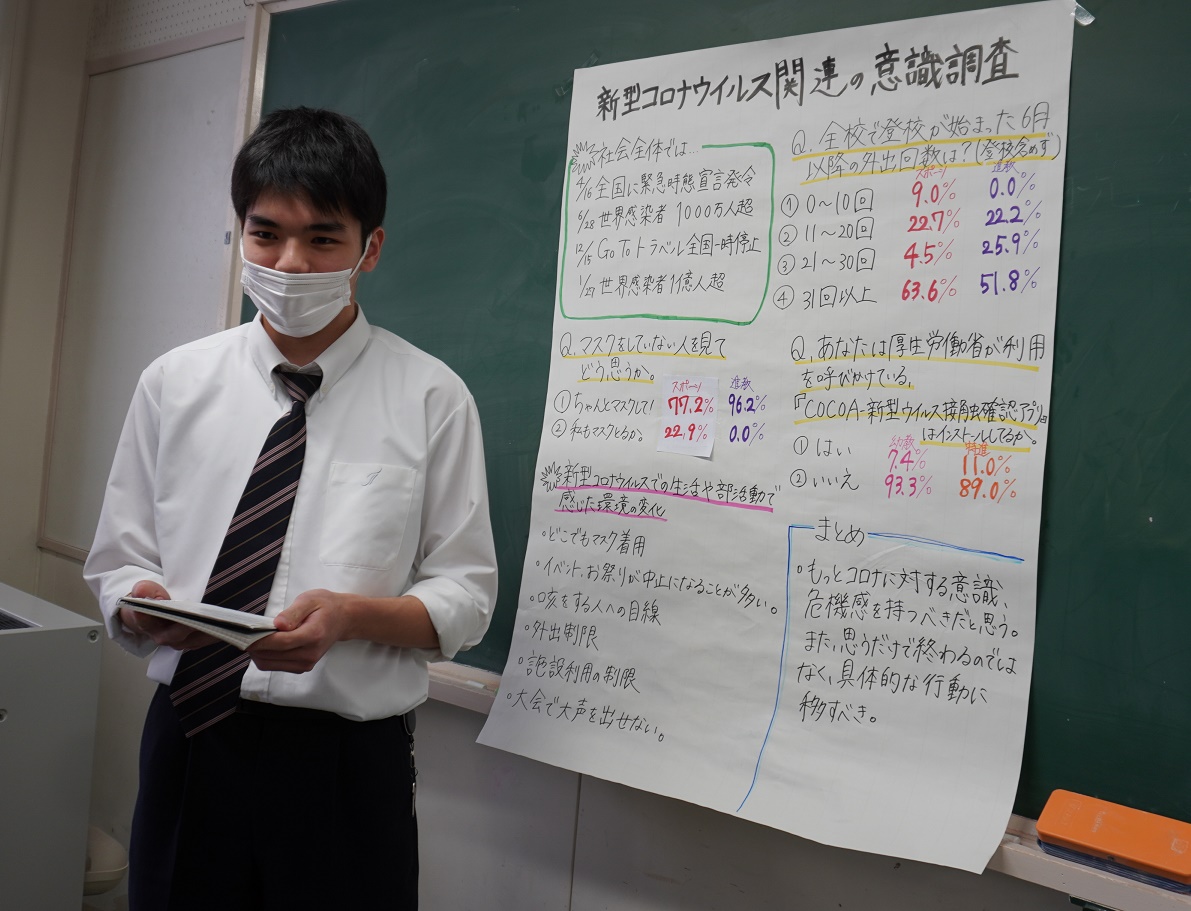 新型コロナウイルス関連の意識調査
社会全体では...
4/16 全国に緊急時態宣言発令
6/28 世界感染者 1000万人超
12/15 Go To トラベル全国一時停止
1/27 世界感染者1億人超
Q. マスクをしていない人を見て
どう思うか。
スポーツ 進数
① ちゃんとマスクして! 77.2% 96.2%
② 私もマスクとるか。 22.9% 0.0%
新型コロナウイルスでの生活や部活動で
感じた環境の変化
・どこでもマスク着用
・イベント、お祭りが中止になることが多い。
・咳をする人への目線
・外出制限
・施設利用の制限
・大会で大声を出せない。
Q. 全校で登校が始まった6月
以降の外出回数は?(登校含めず)
スポーツ 進数
① 0~10回 9.0% 0.0%
② 11~20回 22.7% 22.2%
③ 21~30回 4.5% 25.9%
④ 31回以上 63.6% 51.8%
Q. あなたは厚生労働省が利用
を呼びかけている、
『COCOA-新型ウイルス接触確認アプリ』
はインストールしてるか。
幼教 特進
① はい 7.4% 11.0%
② いいえ 93.3% 89.0%
まとめ
・もっとコロナに対する意識、
危機感を持つべきだと思う。
また、思うだけで終わるのでは
なく、具体的な行動に
移すべき。